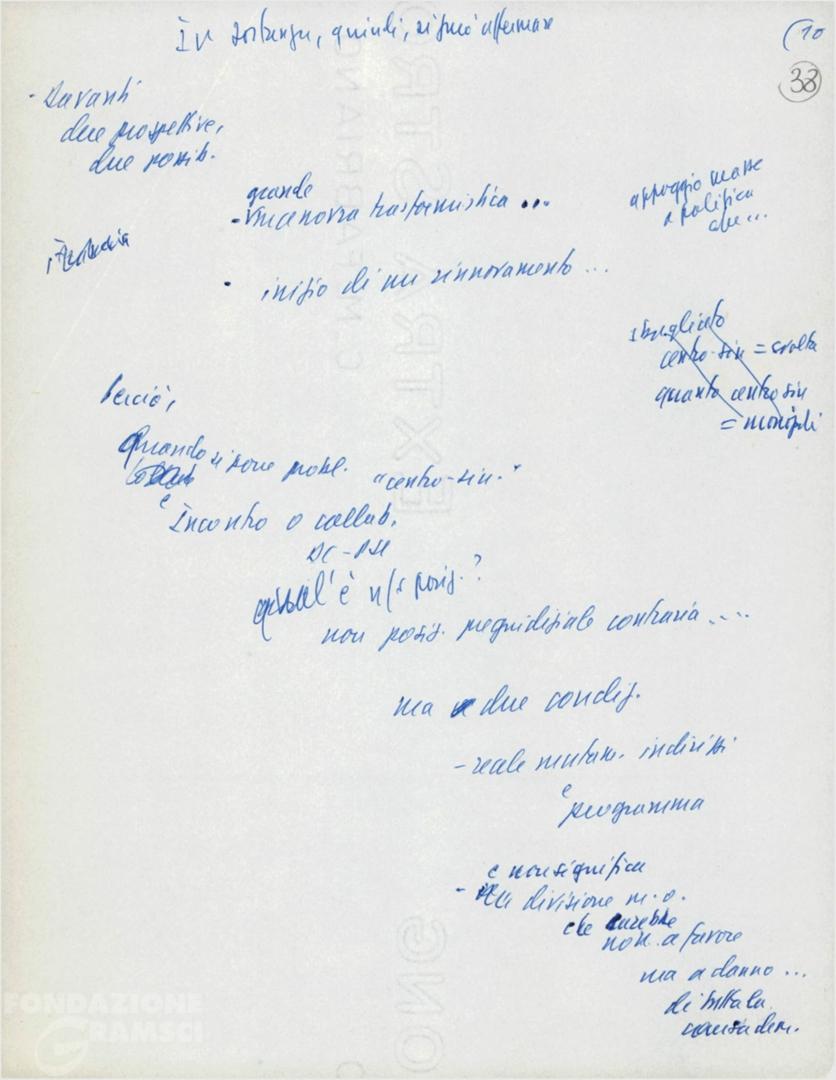 In sostanza, quindi, si può affermare
(10
33
- Davanti
due prospettive,
due possib.
grande
- nuova trasformistica ...
appoggio masse
a politica
che...
- inizio di un rinnovamento ...
sbagliato
centro-sin = svolta
quanto centro sin
= monopoli
Perciò,
Quando si pone probl. "centro-sin."
e
Incontro o collab.
DC-PSI
qual'è n/s posiz.?
non posiz. pregiudiziale contraria ....
ma a due condiz.
- reale mutam. indirizzi
e
programma
e non significa
- divisione m.o.
che sarebbe
non a favore
ma a danno ...
di tutta la
causa dem.
FONDAZIONE
GRAMSCI
C. M. FABRIANO
EXTRA STRONG